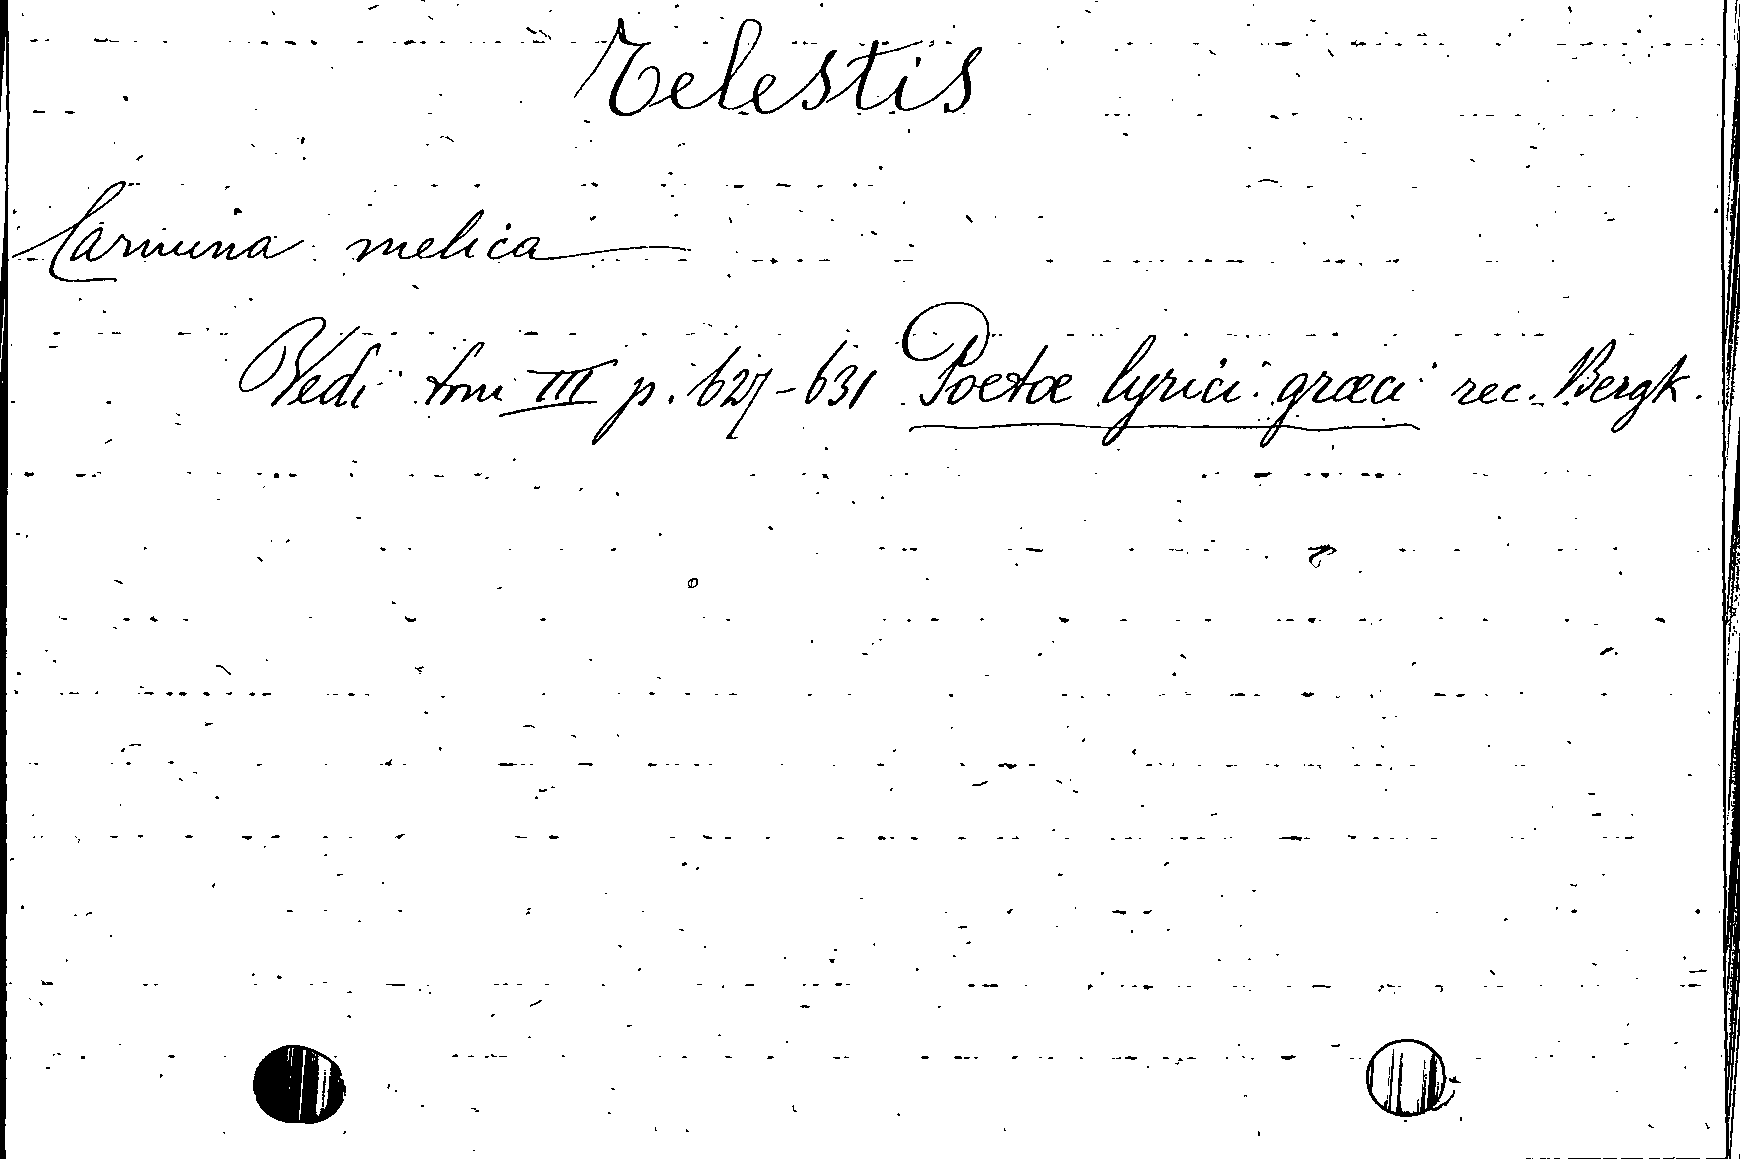 Telestis
Carmina melica
Vedi tom III p. 627-631 Poetæ lyrici græci rec. Bergk.